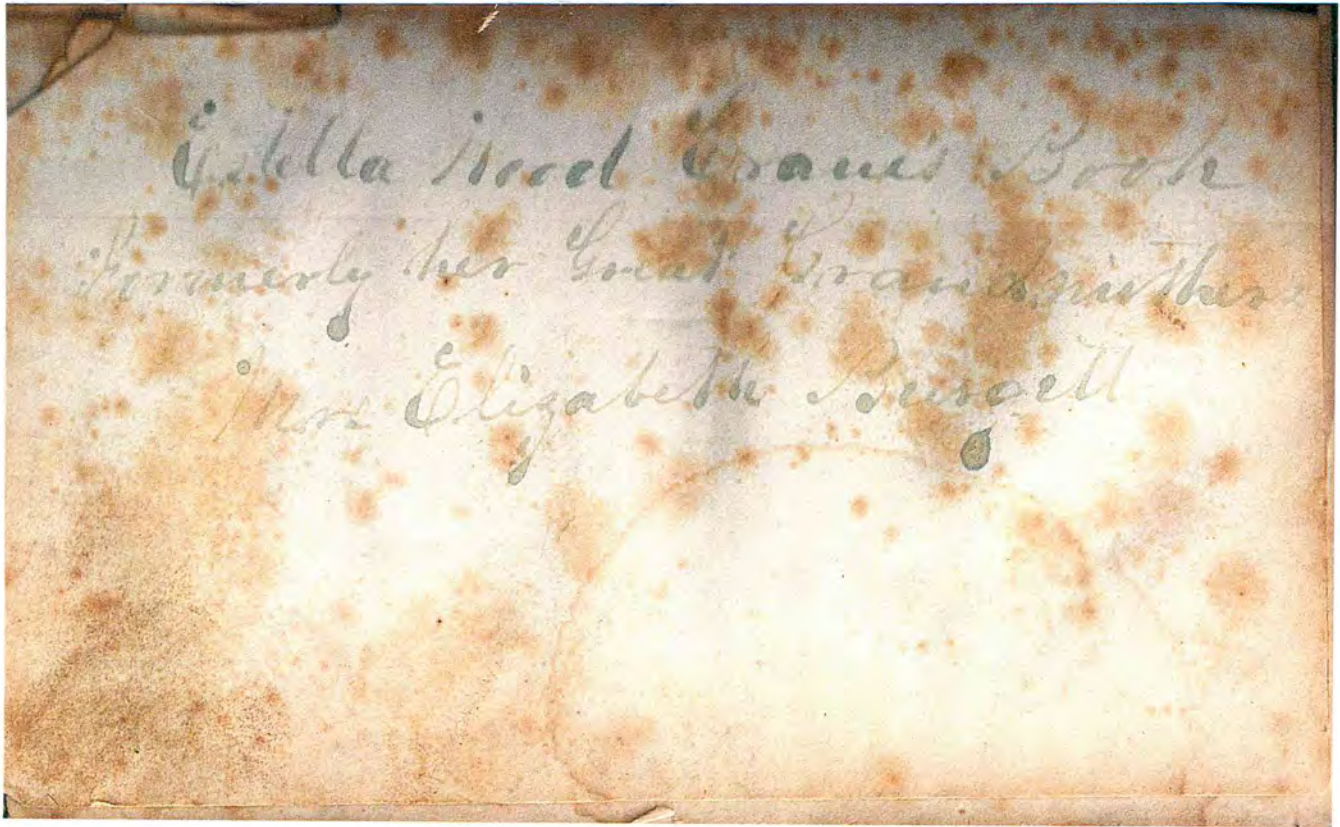 Estella Wood Crane's Book
Formerly her Great Grandmothers
Mrs Elizabeth